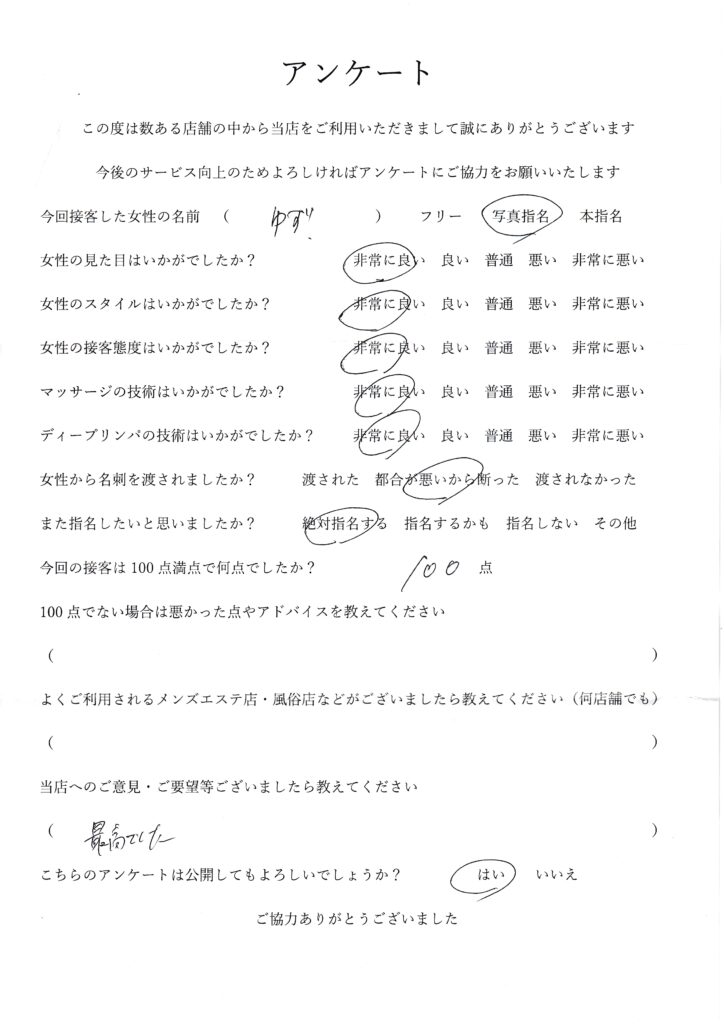 アンケート
この度は数ある店舗の中から当店をご利用いただきまして誠にありがとうございます
今後のサービス向上のためよろしければアンケートにご協力をお願いいたします
今回接客した女性の名前 （ ゆず ） フリー 写真指名 本指名
女性の見た目はいかがでしたか？ 非常に良い 良い 普通 悪い 非常に悪い
女性のスタイルはいかがでしたか？ 非常に良い 良い 普通 悪い 非常に悪い
女性の接客態度はいかがでしたか？ 非常に良い 良い 普通 悪い 非常に悪い
マッサージの技術はいかがでしたか？ 非常に良い 良い 普通 悪い 非常に悪い
ディープリンパの技術はいかがでしたか？ 非常に良い 良い 普通 悪い 非常に悪い
女性から名刺を渡されましたか？ 渡された 都合が悪いから断った 渡されなかった
また指名したいと思いましたか？ 絶対指名する 指名するかも 指名しない その他
今回の接客は100点満点で何点でしたか？ 100 点
100点でない場合は悪かった点やアドバイスを教えてください
（ ）
よくご利用されるメンズエステ店・風俗店などがございましたら教えてください（何店舗でも）
（ ）
当店へのご意見・ご要望等ございましたら教えてください
（ 最高でした ）
こちらのアンケートは公開してもよろしいでしょうか？ はい いいえ
ご協力ありがとうございました